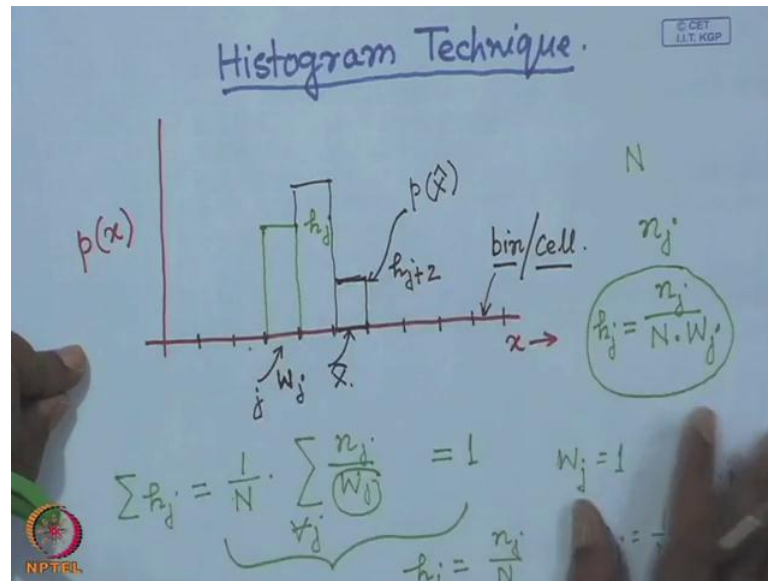 Histogram Technique.
© CET
I.I.T. KGP
p(x)
h_j
p(x̂)
h_{j+2}
bin/cell.
x →
j W_j
x̂.
N
n_j
h_j = n_j / (N · W_j)
∑ h_j = 1/N · ∑_{∀j} n_j / W_j = 1
W_j = 1
h_j = n_j / N
NPTEL